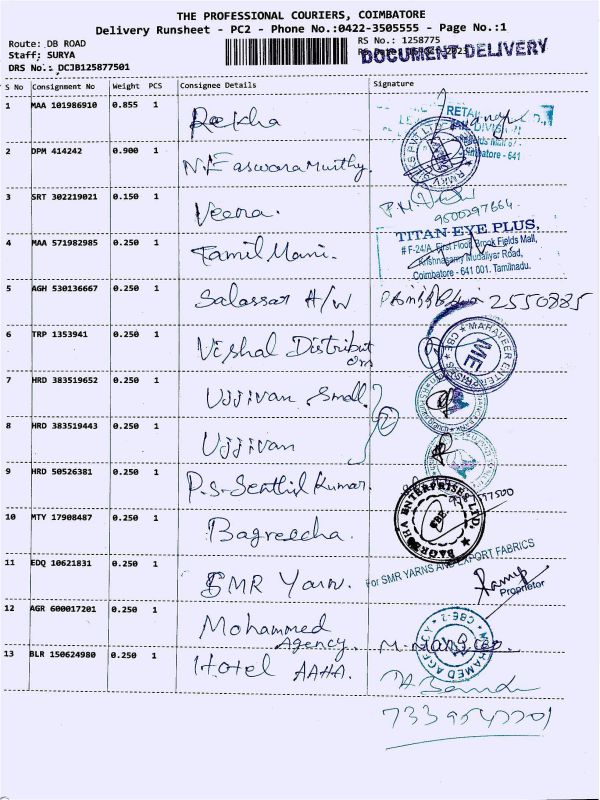 THE PROFESSIONAL COURIERS, COIMBATORE
Delivery Runsheet - PC2 - Phone No.:0422-3505555 - Page No.:1
Route: DB ROAD
RS No.: 1258775
Staff: SURYA
DOCUMENT DELIVERY
DRS No.: DCJB125877501
S No Consignment No Weight PCS Consignee Details Signature
1 MAA 101986910 0.855 1 Rekha
RETAIL
Coimbatore - 641
2 DPM 414242 0.900 1 N. Easwaramurthy.
3 SRT 302219021 0.150 1 Veena.
9500297664
TITAN EYE PLUS,
# F-24/A, First Floor, Brook Fields Mall,
Krishnasamy Mudaliyar Road,
Coimbatore - 641 001. Tamilnadu.
4 MAA 571982985 0.250 1 Tamil Mani.
5 AGH 530136667 0.250 1 Salassar H/W 2550885
6 TRP 1353941 0.250 1 Vishal Distributors
MAHAVEER ENTERPRISES CBE
7 HRD 383519652 0.250 1 Ujjivan Small.
8 HRD 383519443 0.250 1 Ujjivan
9 HRD 50526381 0.250 1 P.S. Senthil Kumar.
10 MTY 17908487 0.250 1 Bagreecha.
ENTERPRISES LTD.
CBE
11 EDQ 10621831 0.250 1 SMR Yarn.
For SMR YARNS AND EXPORT FABRICS
Proprietor
12 AGR 600017201 0.250 1 Mohammed Agency.
MOHAMED AGENCY CBE-2
13 BLR 150624980 0.250 1 Hotel AAHA.